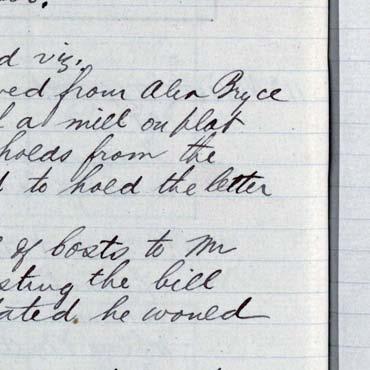 d viz.
ved from Alex Bryce
l a mill on plat
holds from the
d to hold the letter
of costs to Mr
sting the bill
tated he would